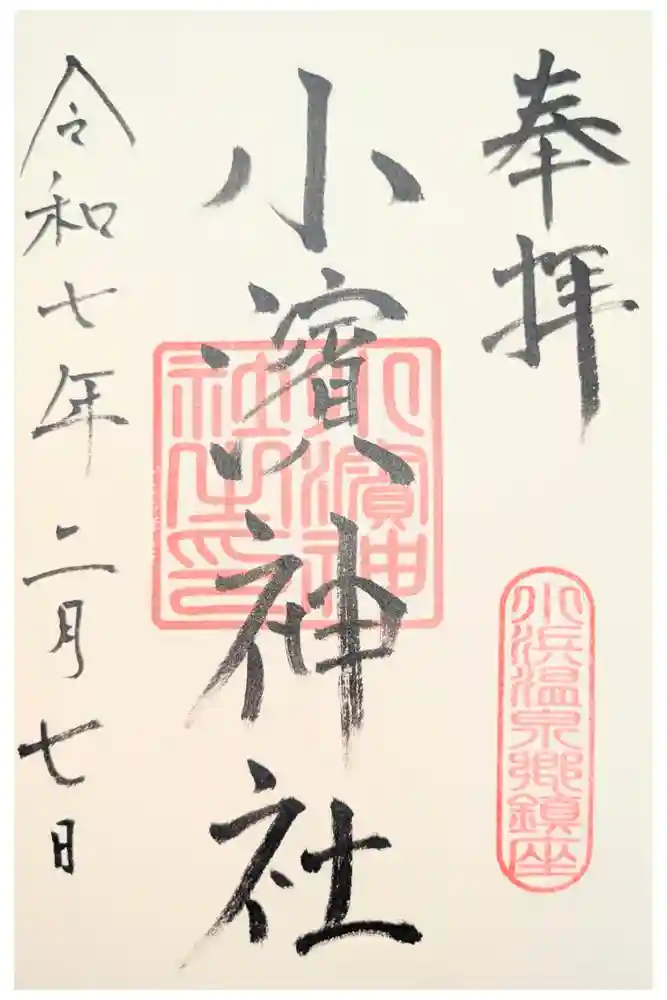 奉拝
小浜温泉郷鎮座
小濱神社
小濱神
社之印
令和七年二月七日